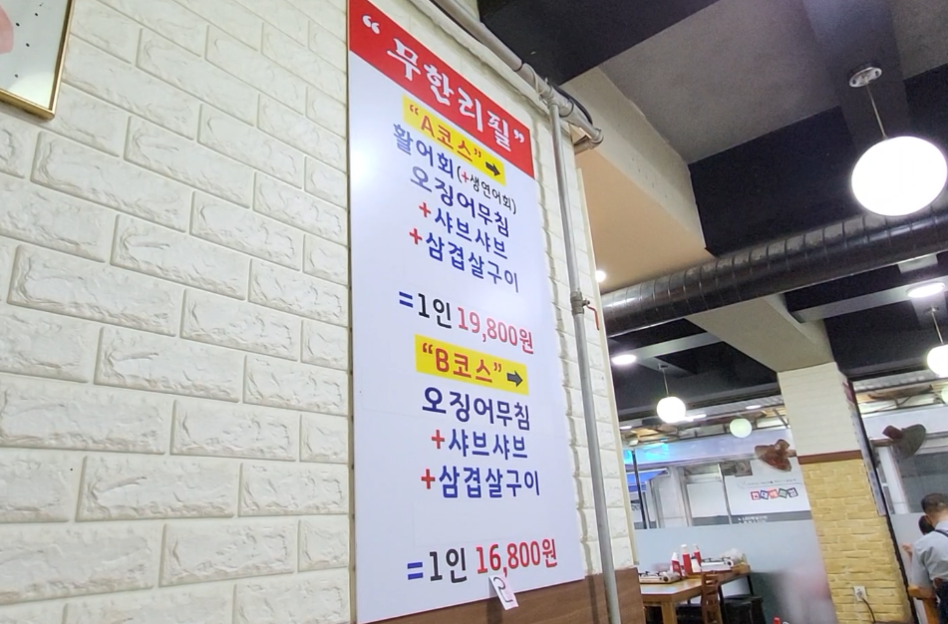 “무한리필”
“A코스”➡
활어회(+생연어회)
오징어무침
+샤브샤브
+삼겹살구이
=1인 19,800원
“B코스”➡
오징어무침
+샤브샤브
+삼겹살구이
=1인 16,800원
2